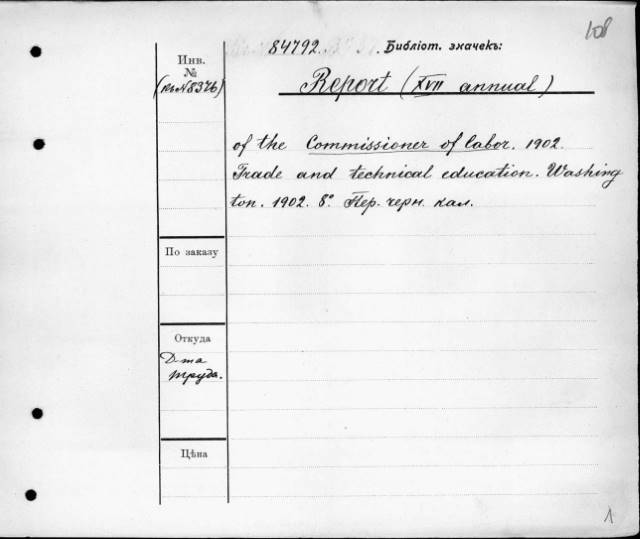 108
84792. Библіот. значекъ:
Инв.
№
(къ №8376)
Report (XVII annual)
of the Commissioner of labor. 1902.
Trade and technical education. Washing
ton. 1902. 8°. Пер. черн. кал.
По заказу
Откуда
Д-та
труда.
Цѣна
1